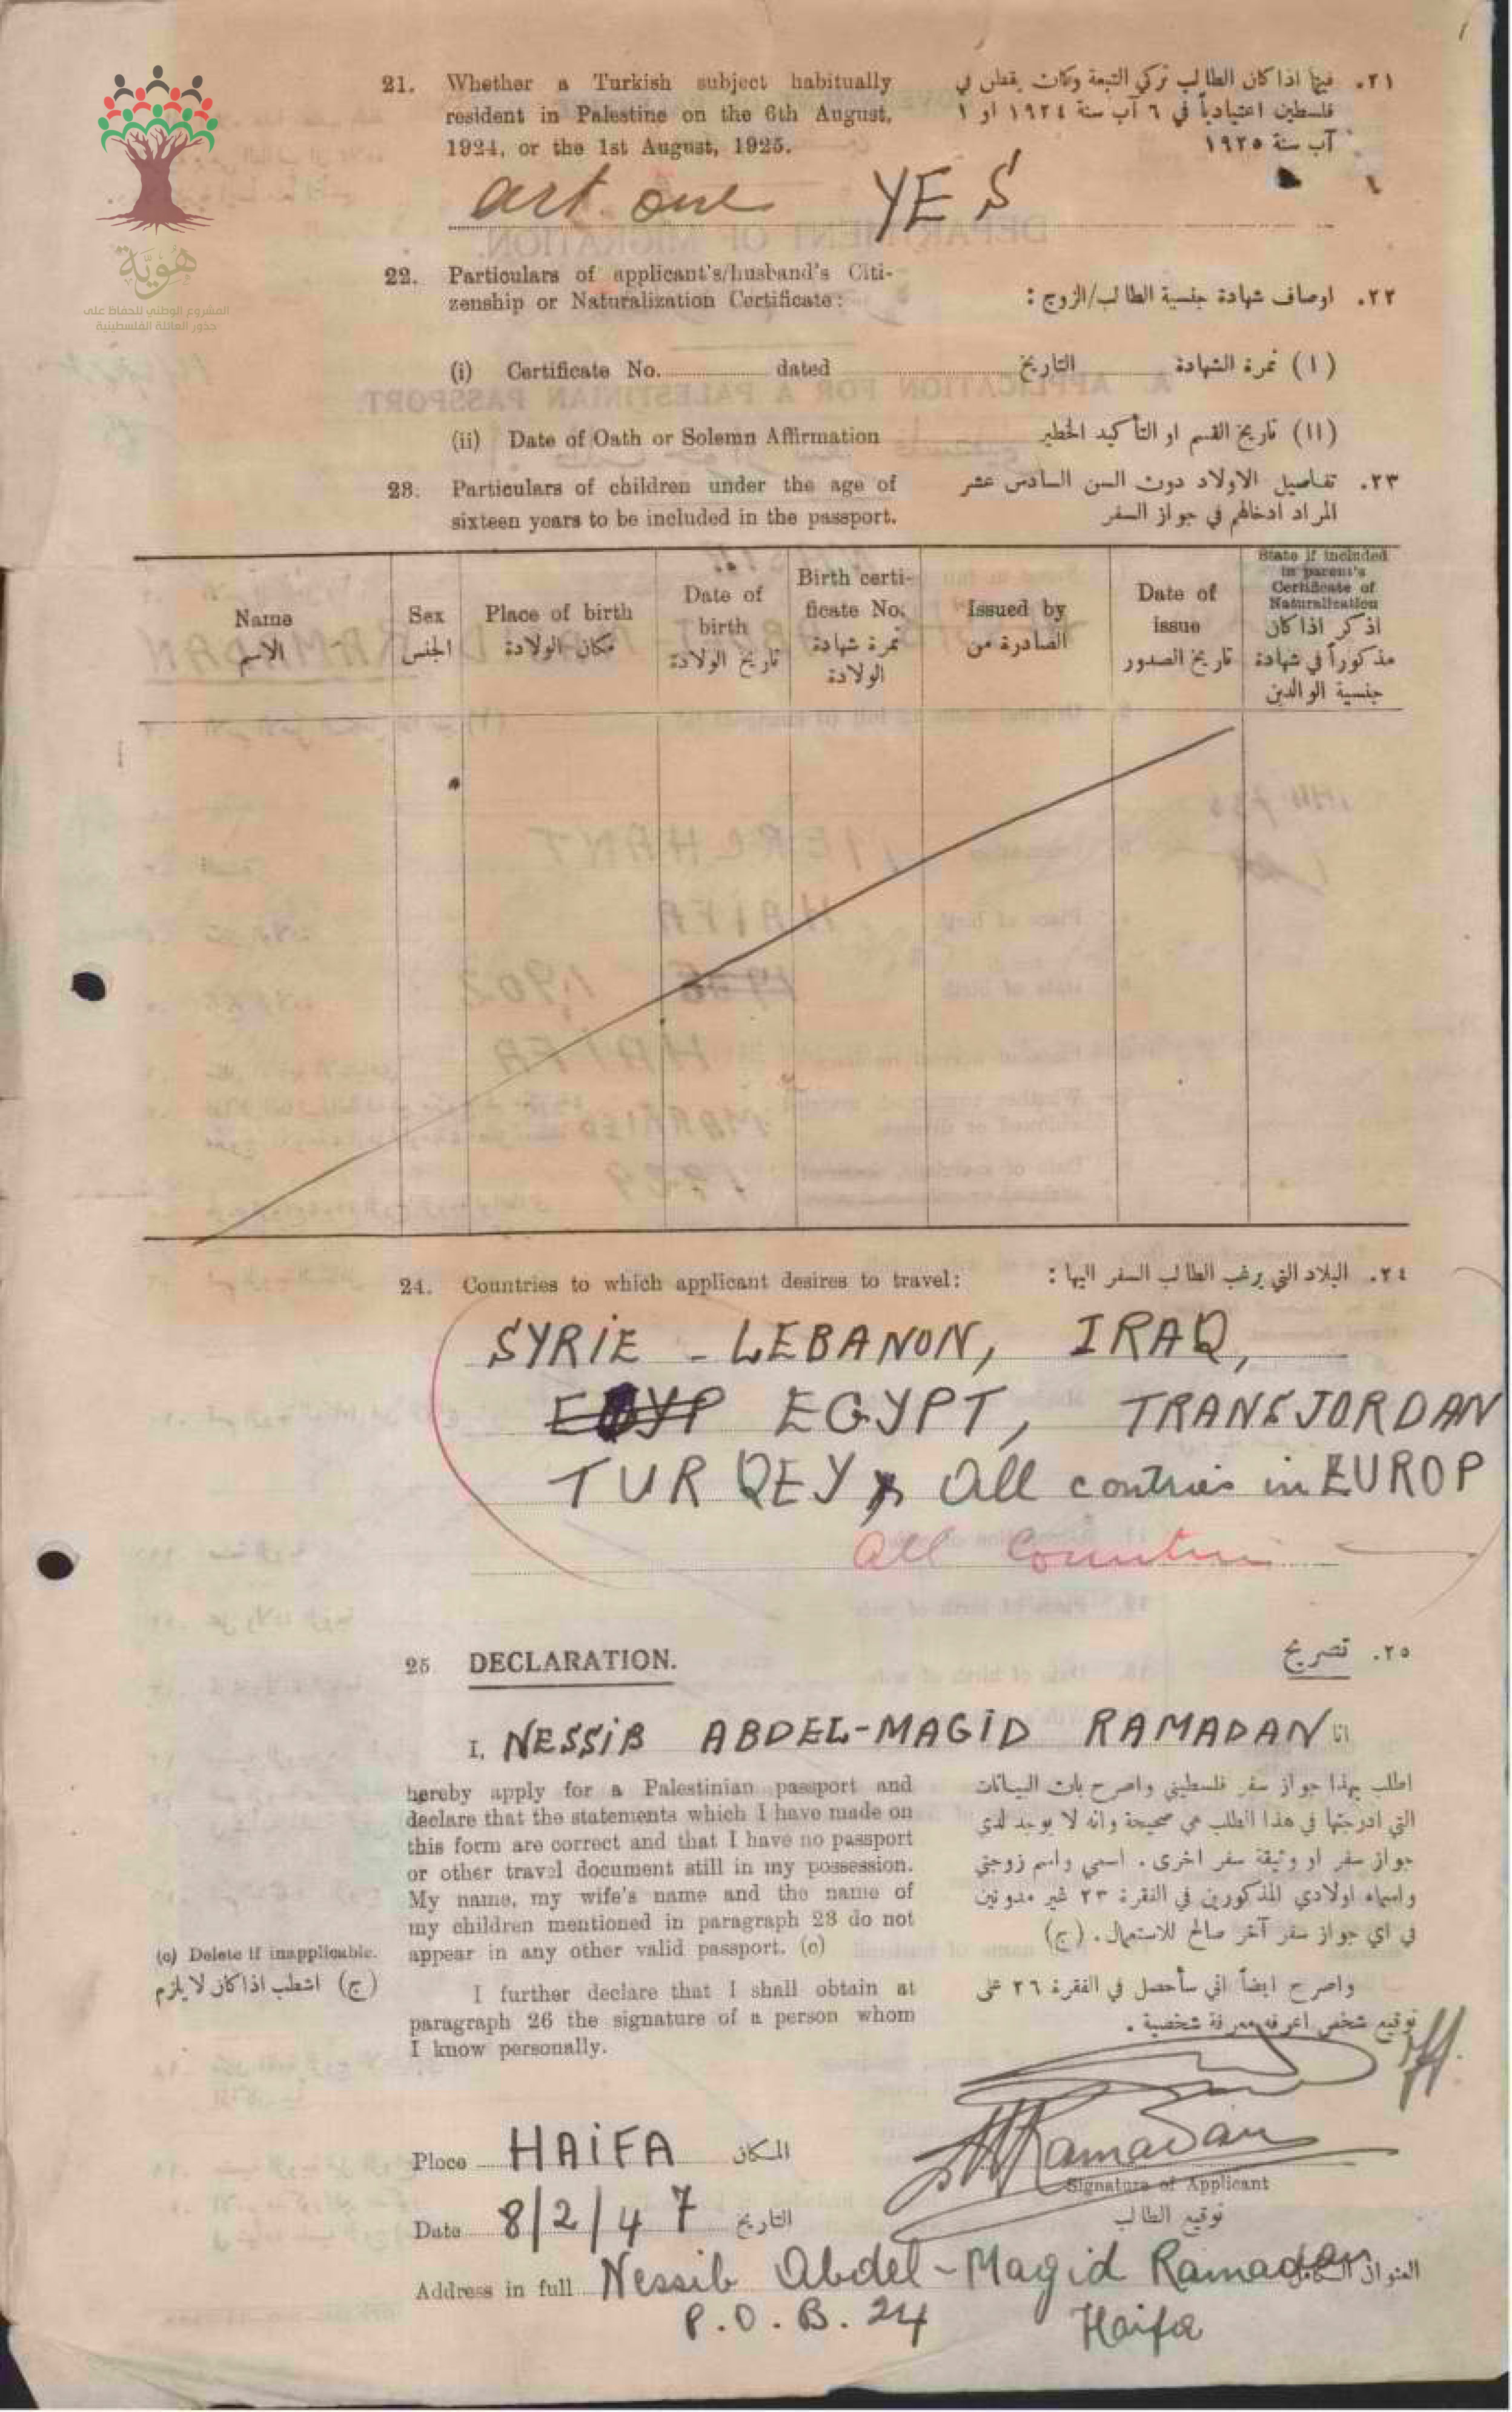 هوية
المشروع الوطني للحفاظ على
جذور العائلة الفلسطينية
21. Whether a Turkish subject habitually
resident in Palestine on the 6th August,
1924, or the 1st August, 1925.
٢١. فيما اذا كان الطالب تركي التبعة وكان يقطن في
فلسطين اعتيادياً في ٦ آب سنة ١٩٢٤ او ١
آب سنة ١٩٢٥
art. one YES
22. Particulars of applicant's/husband's Citi-
zenship or Naturalization Certificate:
٢٢. اوصاف شهادة جنسية الطالب/الزوج :
(i) Certificate No. dated
التاريخ (١) نمرة الشهادة
(ii) Date of Oath or Solemn Affirmation
(١١) تاريخ القسم او التأكيد الخطير
23. Particulars of children under the age of
sixteen years to be included in the passport.
٢٣. تفاصيل الاولاد دون السن السادس عشر
المراد ادخالهم في جواز السفر
Name
الاسم
Sex
الجنس
Place of birth
مكان الولادة
Date of
birth
تاريخ الولادة
Birth certi-
ficate No.
نمرة شهادة
الولادة
Issued by
الصادرة من
Date of
issue
تاريخ الصدور
State if included
in parent's
Certificate of
Naturalization
اذكر اذا كان
مذكوراً في شهادة
جنسية الوالدين
24. Countries to which applicant desires to travel:
٢٤. البلاد التي يرغب الطالب السفر اليها :
SYRIE - LEBANON, IRAQ,
EGYP EGYPT, TRANSJORDAN
TURQEY, All contries in EUROP
All Countries
25 DECLARATION.
٢٥. تصريح
I, NESSiB ABDEL-MAGiD RAMADAN انا
hereby apply for a Palestinian passport and
declare that the statements which I have made on
this form are correct and that I have no passport
or other travel document still in my possession.
My name, my wife's name and the name of
my children mentioned in paragraph 23 do not
appear in any other valid passport. (c)
اطلب بهذا جواز سفر فلسطيني واصرح بان البيانات
التي ادرجتها في هذا الطلب هي صحيحة وانه لا يوجد لدي
جواز سفر او وثيقة سفر اخرى. اسمي واسم زوجتي
واسماء اولادي المذكورين في الفقرة ٢٣ غير مدونين
في اي جواز سفر آخر صالح للاستعمال. (ج)
(c) Delete if inapplicable.
(ج) اشطب اذا كان لا يلزم
I further declare that I shall obtain at
paragraph 26 the signature of a person whom
I know personally.
واصرح ايضاً اني سأحصل في الفقرة ٢٦ على
توقيع شخص اعرفه معرفة شخصية.
Place HAiFA المكان
Ramadan
Signature of Applicant
توقيع الطالب
Date 8/2/47 التاريخ
Address in full Nessib Abdel-Magid Ramadan العنوان الكامل
P.O.B. 24 Haifa